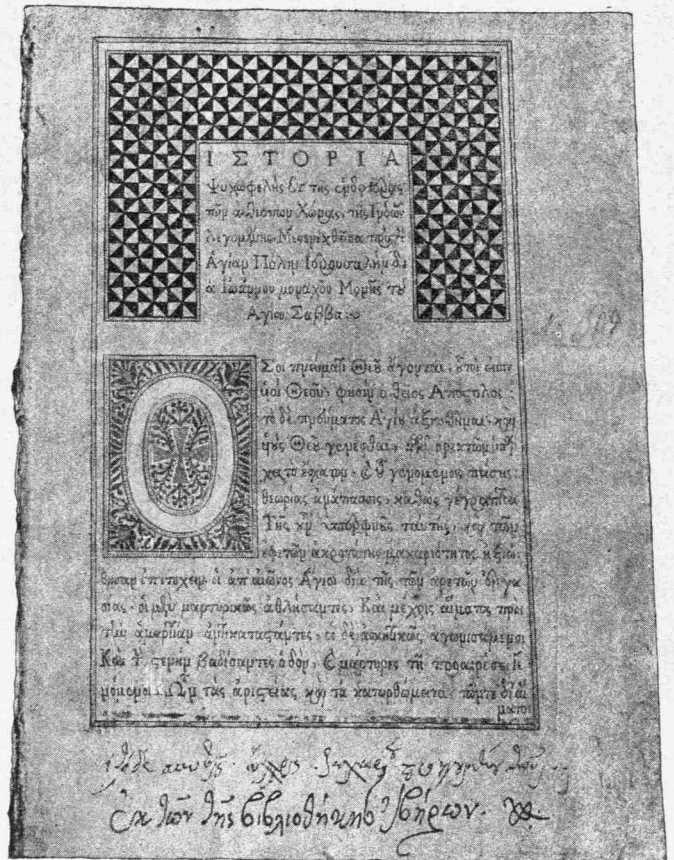 ΙΣΤΟΡΙΑ
Ψυχωφελὴς ἐκ τῆς ἐνδοτέρας
τῶν αἰθιόπων Χώρας, τῆς Ἰνδῶν
λεγομένης, Μετενεχθεῖσα πρὸς τὴν
Ἁγίαν Πόλιν Ἱερουσαλὴμ δι
ὰ Ἰωάννου μοναχοῦ Μονῆς τοῦ
Ἁγίου Σάββα
Ὅσοι πνεύματι Θεοῦ ἄγονται, οὗτοί εἰσιν
υἱοὶ Θεοῦ, φησὶν ὁ θεῖος Ἀπόστολος
τὸ δὲ πνεύματος Ἁγίου ἀξιωθῆναι, καὶ
υἱοὺς Θεοῦ γενέσθαι, τῶν ὀρεκτῶν ὑπάρ
χει τὸ ἔσχατον, καὶ οὗ γενομένοις πάσης
θεωρίας ἀνάπαυσις, καθὼς γέγραπται
Τῆς οὖν ὑπερφυοῦς ταύτης, καὶ τῶν
ἐφετῶν ἀκροτάτης μακαριότητος ἠξιώ
θησαν ἐπιτυχεῖν οἱ ἀπ' αἰῶνος Ἅγιοι διὰ τῆς τῶν ἀρετῶν ἐργα
σίας· οἱ μὲν μαρτυρικῶς ἀθλήσαντες, Καὶ μέχρις αἵματος πρὸς
τὴν ἁμαρτίαν ἀντικαταστάντες, οἱ δὲ ἀσκητικῶς ἀγωνισάμενοι
Καὶ τὴν στενὴν βαδίσαντες ὁδὸν, καὶ μάρτυρες τῇ προαιρέσει γε
νόμενοι. Ὧν τὰς ἀριστείας καὶ τὰ κατορθώματα, τῶν τε δι' αἵ
ματος
Ἐκ τῶν τῆς βιβλιοθήκης Ἰβήρων.